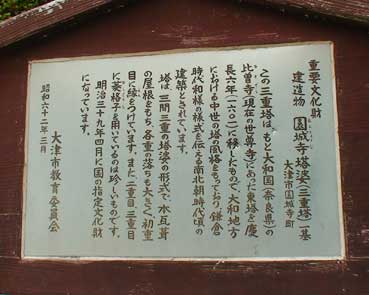 重要文化財
建造物 園城寺塔婆(三重塔)一基
大津市園城寺町
この三重塔は、もと大和国(奈良県)の
比曽寺(現在の世尊寺)にあった東塔を慶
長六年(一六〇一)に移したもので、大和地方
における中世の塔の風格をもっており、鎌倉
時代和様の様式を伝える南北朝時代頃の
建築とされています。
塔は、三間三重の塔婆の形式で、本瓦葺
の屋根をもち、各重の落ちも大きく、初重
目に縁をつけています。また、二重目、三重目
に菱格子を用いているのは珍しいものです。
明治三十九年四月に国の指定文化財
になっています。
昭和六十二年三月
大津市教育委員会